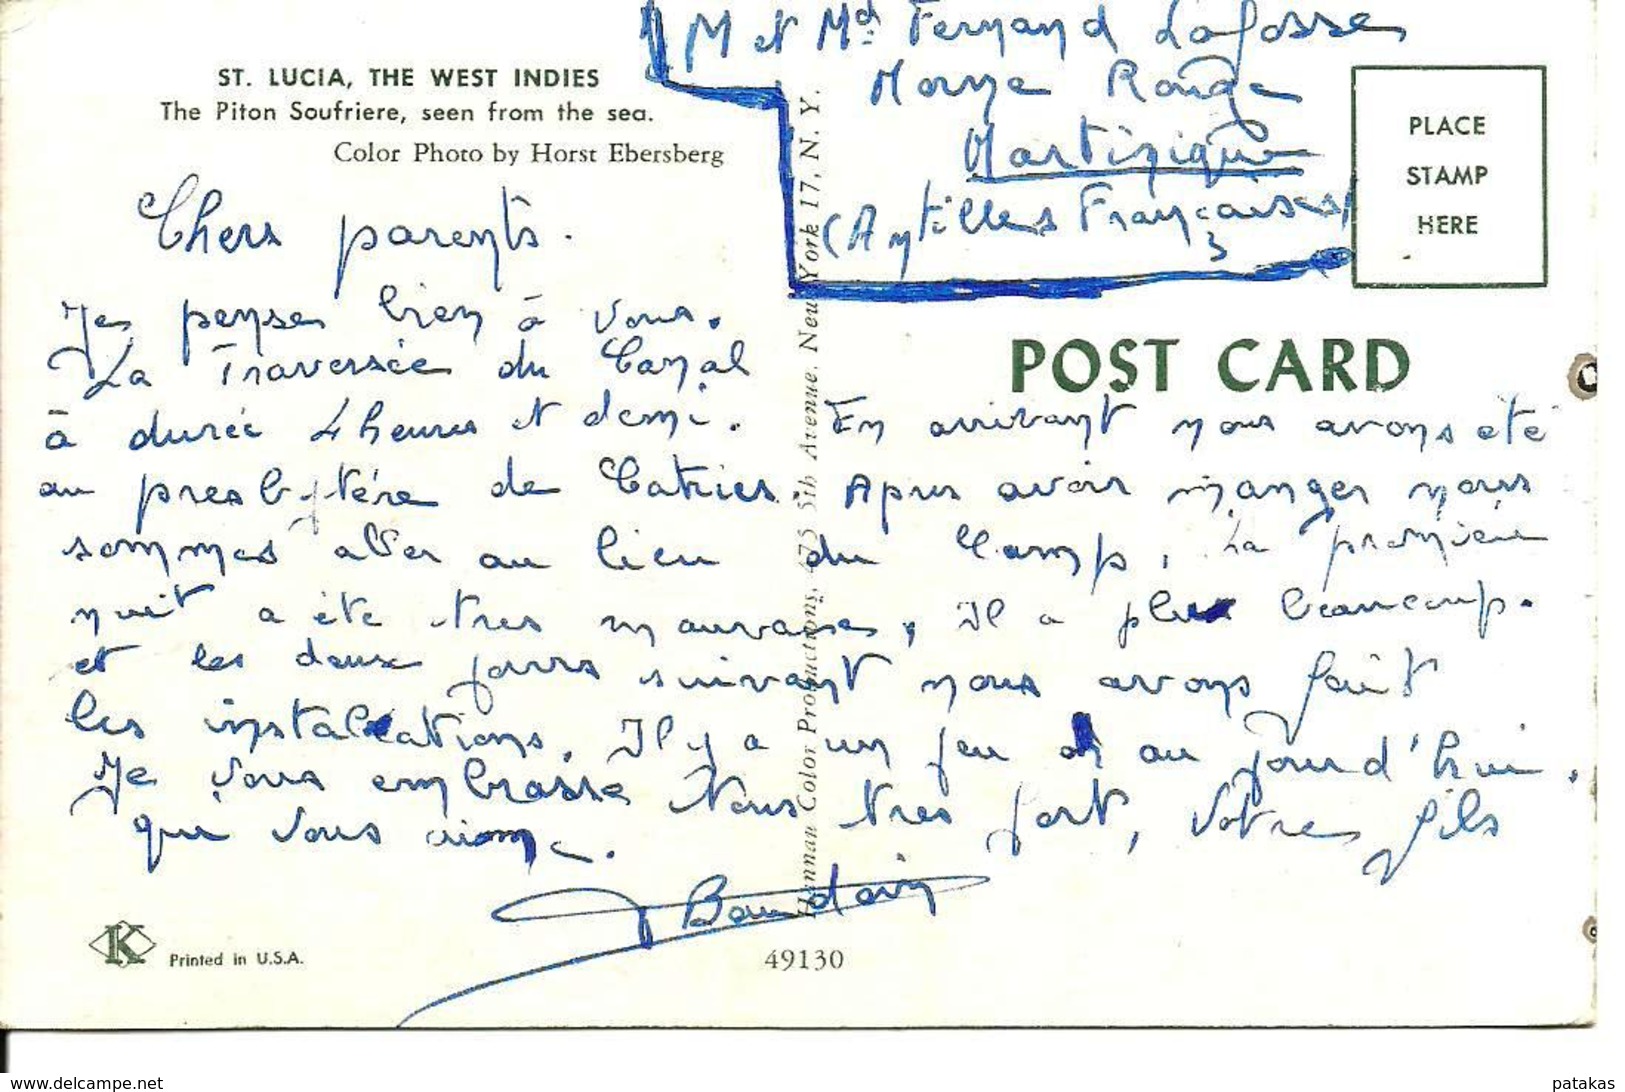 M et Md Fernand Lafosse
Morne Rouge
Martinique
(Antilles Françaises)
ST. LUCIA, THE WEST INDIES
The Piton Soufriere, seen from the sea.
Color Photo by Horst Ebersberg
PLACE
STAMP
HERE
POST CARD
Chers parents.
Je penses bien à vous.
La Traversée du Canal
à durée 4 heures et demi. En arrivant nous avons été
au presbytére de Catries. Apres avoir manger nous
sommes aller au lieu du Camp, La premiere
nuit a été tres mauvaise, Il a plu beaucoup.
et les deux jours suivant nous avons fait
les installations. Il y a un feu au jourd'hui.
Je vous embrasse Tous tres fort, Votre fils
qui vous aime.
Baudoin
Hannau Color Productions, 475 5th Avenue, New York 17, N. Y.
K
Printed in U.S.A.
49130
www.delcampe.net
patakas